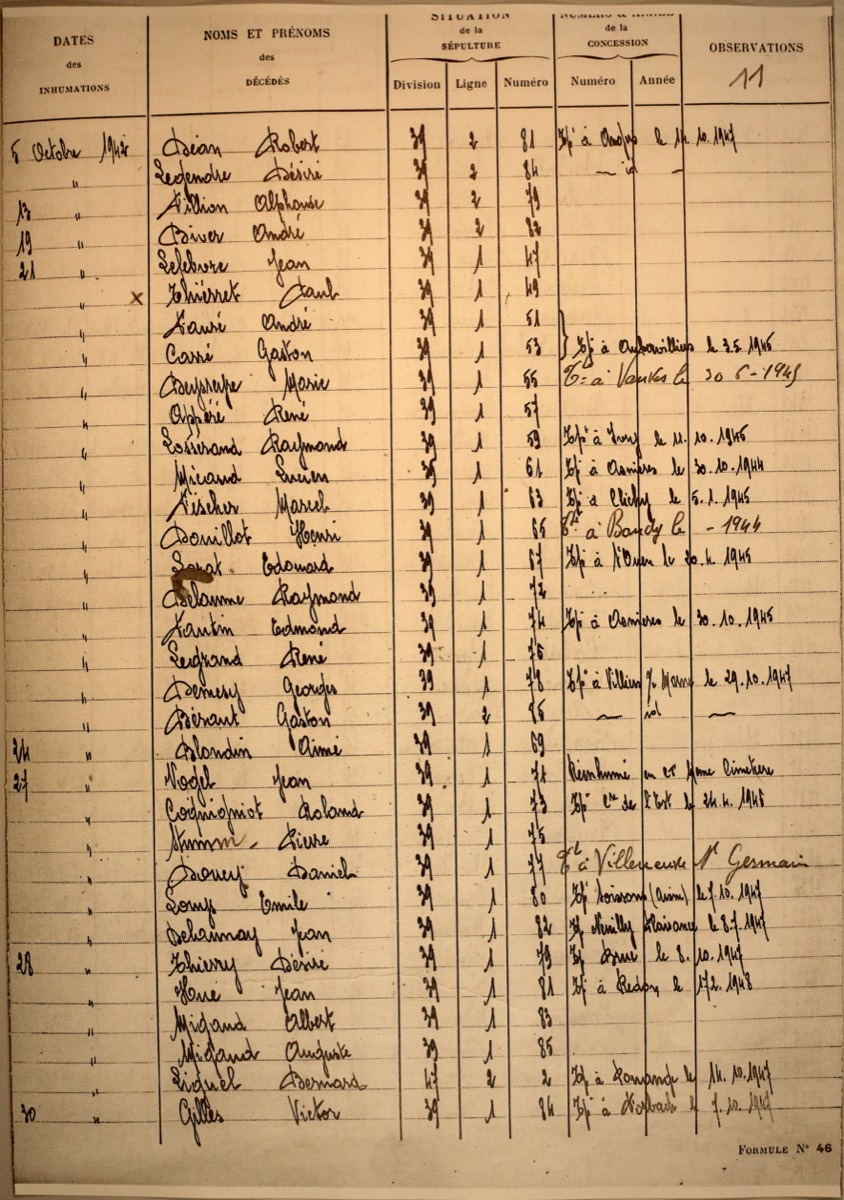 DATES des INHUMATIONS
NOMS ET PRÉNOMS des DÉCÉDÉS
SITUATION de la SÉPULTURE
Division Ligne Numéro
NUMÉRO & ANNÉE de la CONCESSION
Numéro Année
OBSERVATIONS
11
5 Octobre 1942 Déan Robert 39 2 81 Tf à le 14.10.1947
" Legendre Désiré 39 2 84 — id —
13 " Villion Alphonse 39 2 79
19 " Biver André 39 2 82
21 " Lefebvre Jean 39 1 47
" x Thiésret Paul 39 1 49
" André 39 1 51
" Carré Gaston 39 1 53 Tf à Aubervilliers le 3.5.1945
" Marie 39 1 55 à Vanves le 30 6-1945
" Appéré René 39 1 57
" Losserand Raymond 39 1 59 Tf à Ivry le 11.10.1945
" Micaud Lucien 39 1 61 Tf à Asnières le 30.10.1944
" Fischer Marcel 39 1 63 Tf à Clichy le 5.1.1945
" Douillot Henri 39 1 65 à Bondy le - 1944
" Edouard 39 1 67 Tf à St Ouen le 20.4.1945
" Delaume Raymond 39 1 72
" Edmond 39 1 74 Tf à Asnières le 30.10.1945
" Legrand René 39 1 76
" Demesy Georges 39 1 78 Tf à Villiers s/ Marne le 29.10.1947
" Gaston 39 2 85 — id —
24 " Blondin Aimé 39 1 69
27 " Vogel Jean 39 1 71 Réinhumé en ce même Cimetière
" Roland 39 1 73 Tf de l'Est le 24.4.1945
" Stumm - Pierre 39 1 75
" Douey Daniel 39 1 77 à Villeneuve St Germain
" Loups Emile 39 1 80 Tf Soissons (Aisne) le 7.10.1947
" Delaunay Jean 39 1 82 Tf Neuilly Plaisance le 8.7.1947
28 " Thierry Désiré 39 1 79 Tf le 8.10.1947
" Hué Jean 39 1 81 Tf à Redon le 17.2.1948
" Migaud Albert 39 1 83
" Migaud Auguste 39 1 85
" Liquel Bernard 47 2 2 Tf à le 14.10.1947
30 " Gilles Victor 39 1 84 Tf à le 7.10.1947
FORMULE N° 46